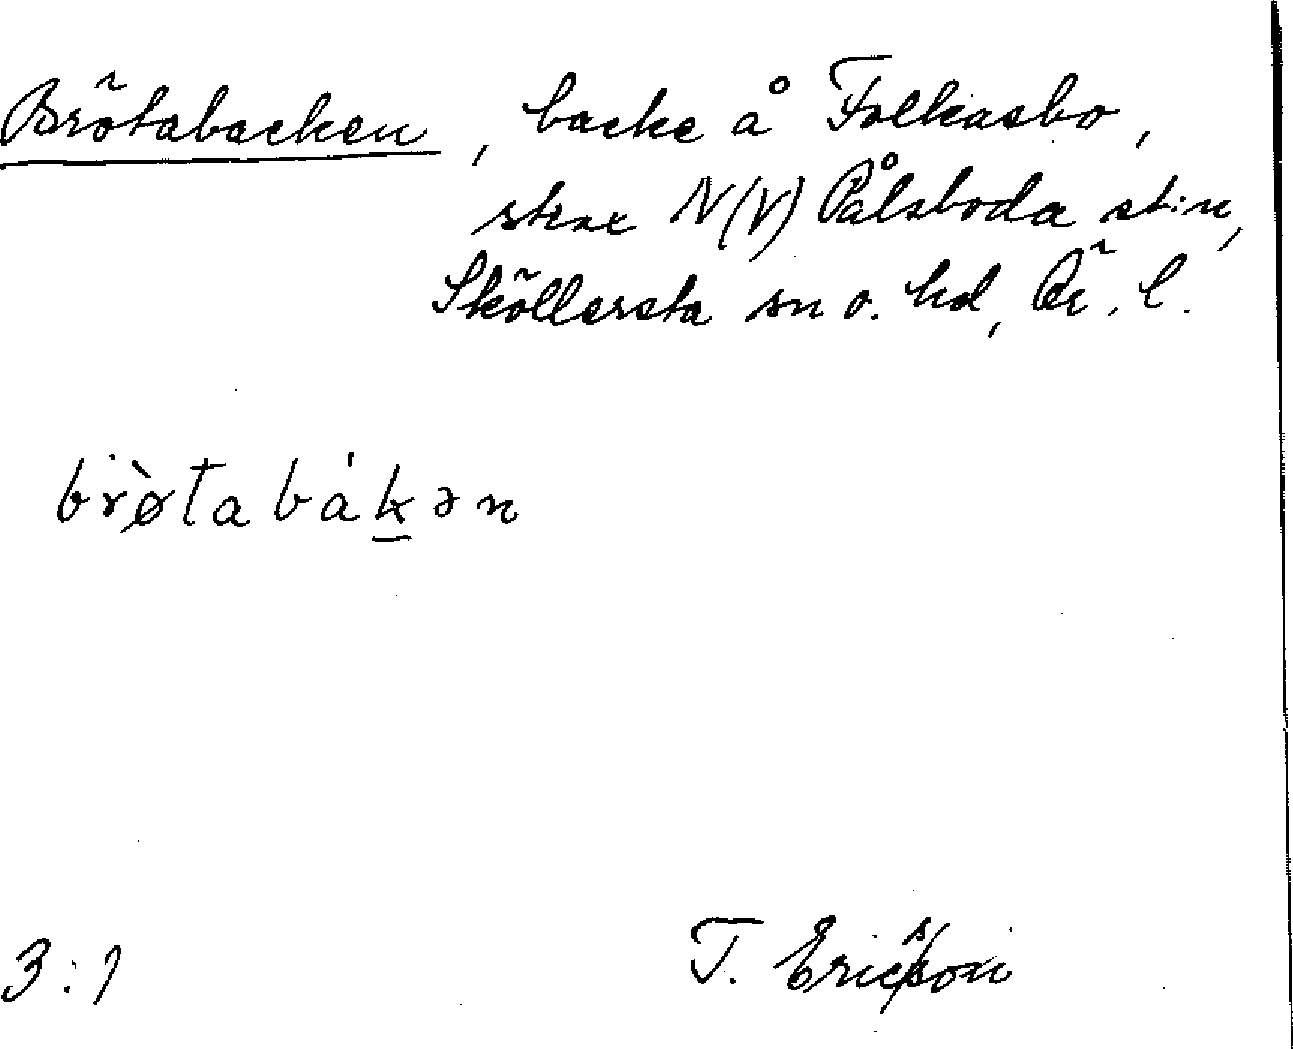 Brötabacken, backe å Folkasbo,
strax N(V) Pålsboda st:n,
Sköllersta sn o. hd, Ör. l.
brø̀tabákən
3:1
T. Ericsson